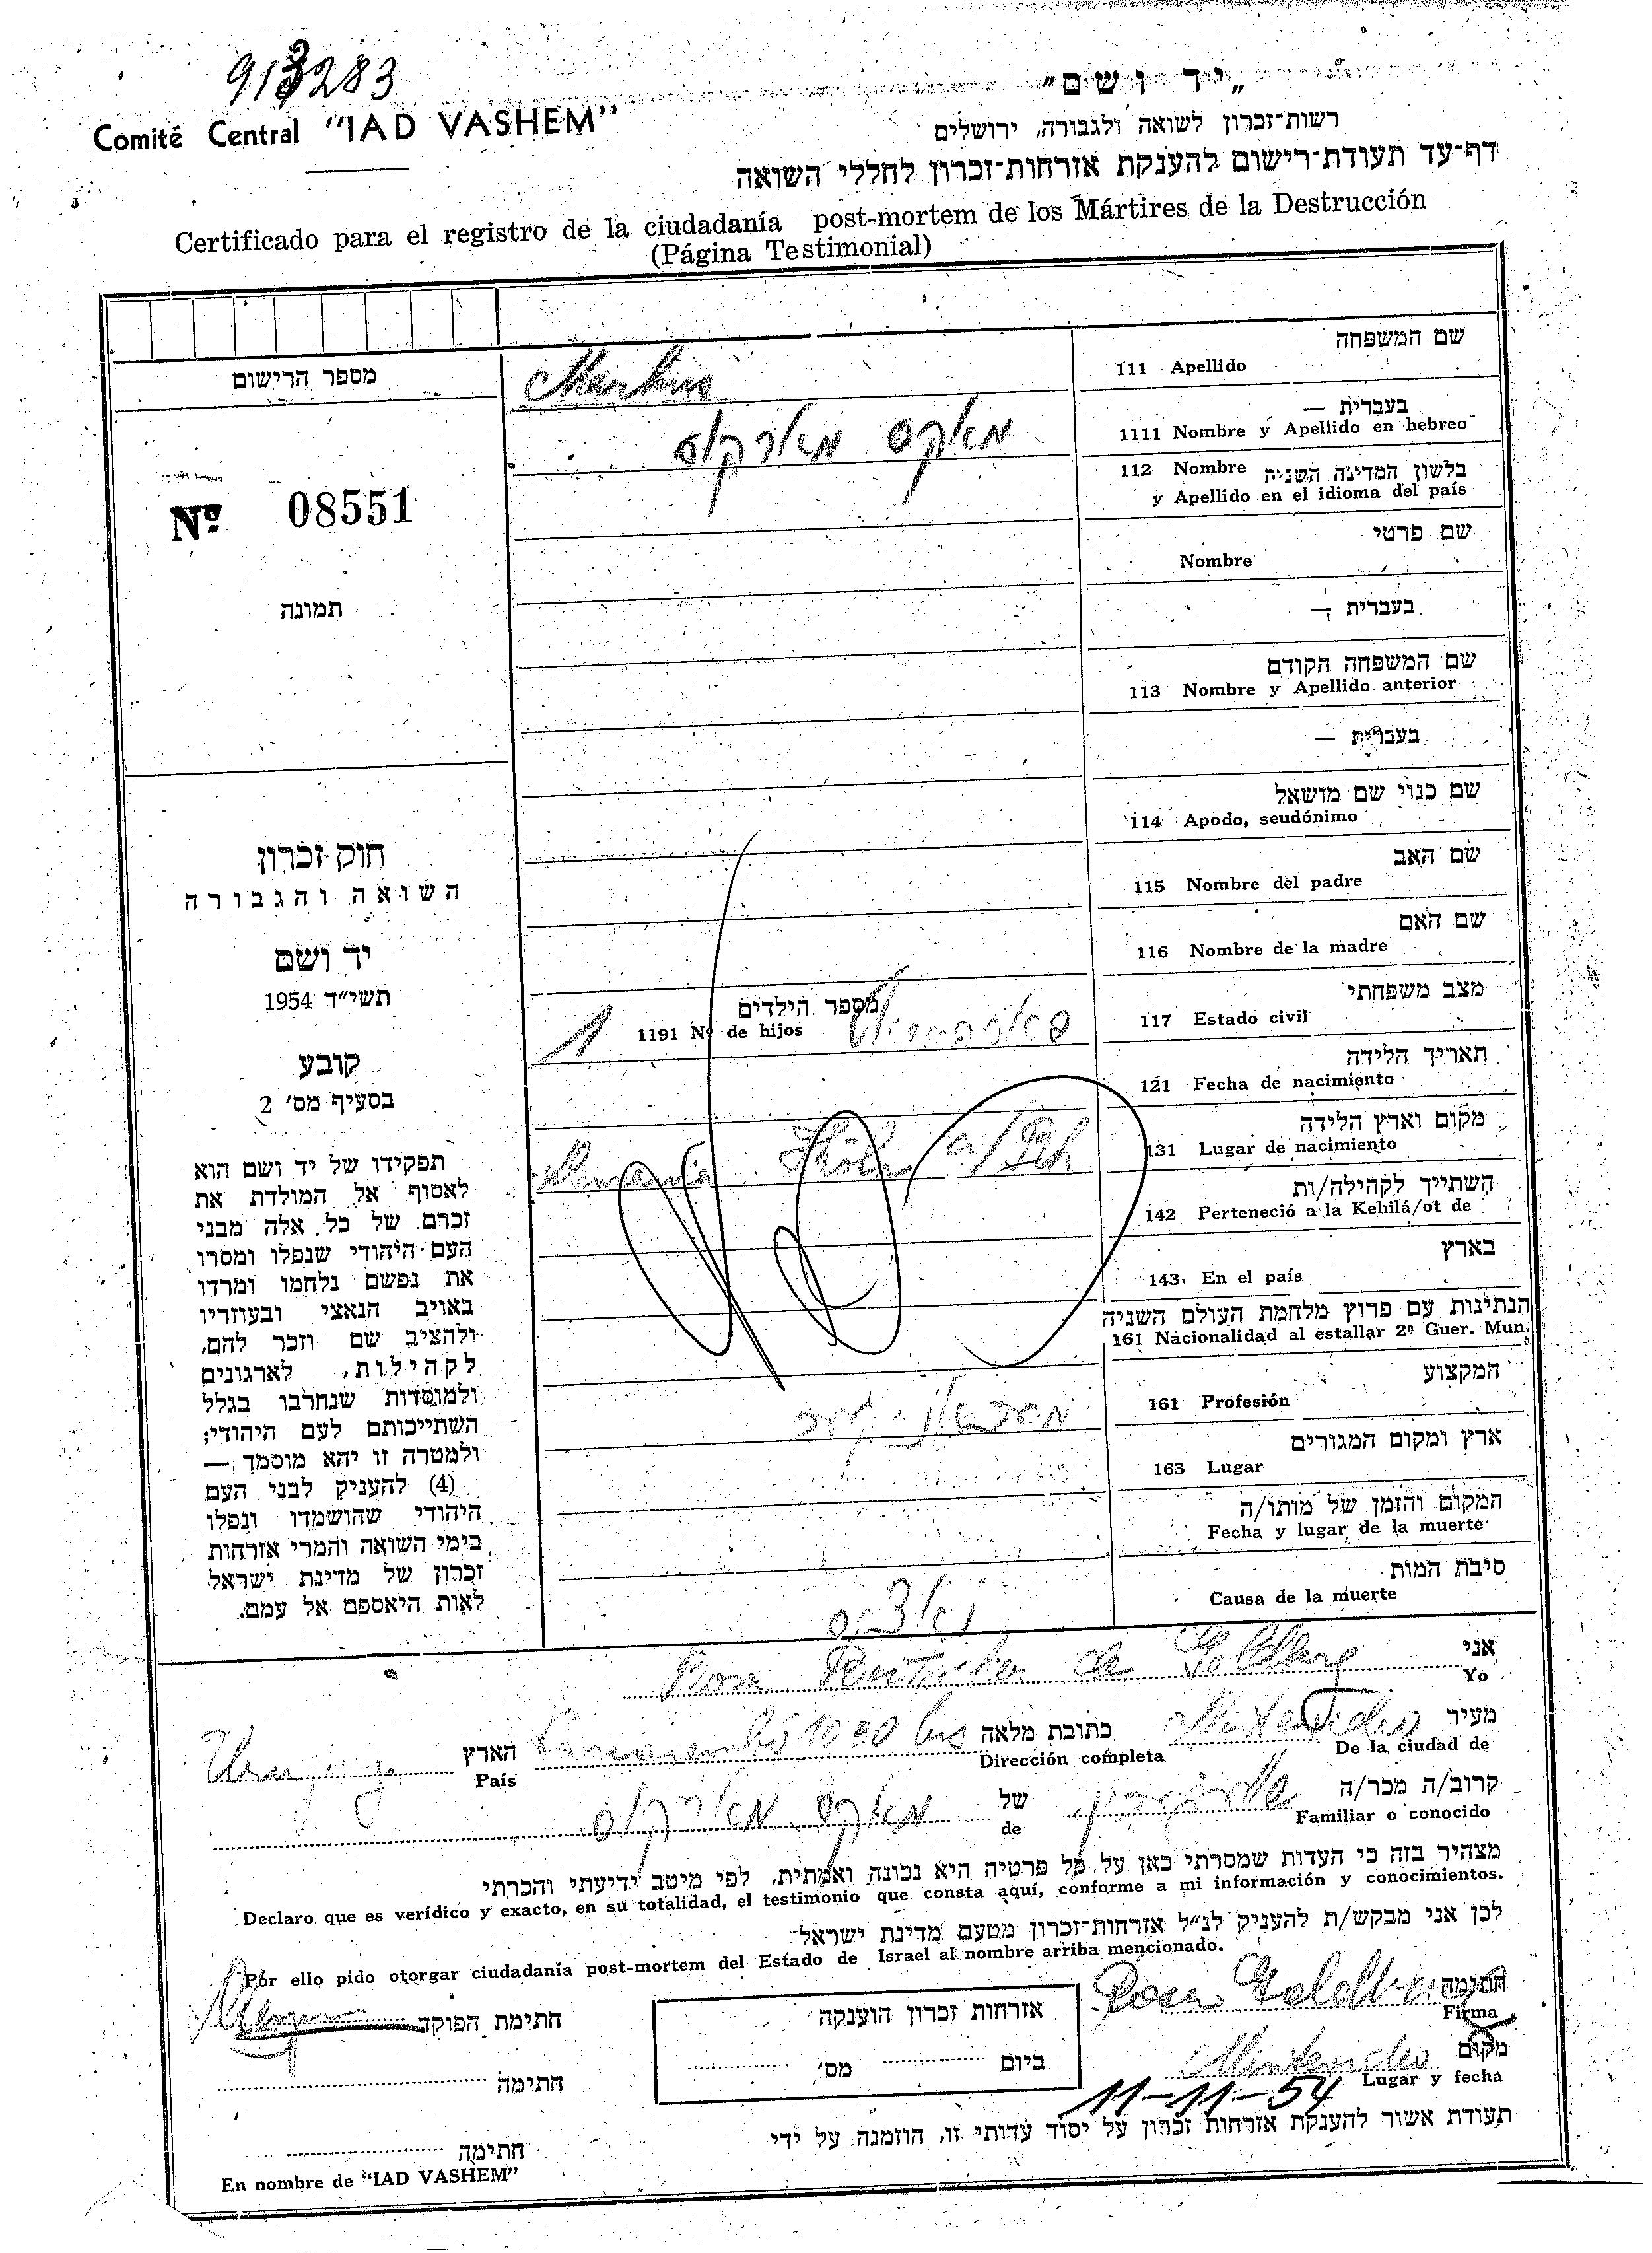 913283
Comité Central "IAD VASHEM"
„יד ושם"
רשות־זכרון לשואה ולגבורה, ירושלים
דף־עד תעודת־רישום להענקת אזרחות־זכרון לחללי השואה
Certificado para el registro de la ciudadanía post-mortem de los Mártires de la Destrucción
(Página Testimonial)
מספר הרישום
Nº 08551
תמונה
חוק זכרון
השואה והגבורה
יד ושם
תשי״ד 1954
קובע
בסעיף מס׳ 2
תפקידו של יד ושם הוא
לאסוף אל המולדת את
זכרם של כל אלה מבני
העם היהודי שנפלו ומסרו
את נפשם נלחמו ומרדו
באויב הנאצי ובעוזריו
ולהציב שם וזכר להם,
לקהילות, לארגונים
ולמוסדות שנחרבו בגלל
השתייכותם לעם היהודי;
ולמטרה זו יהא מוסמך —
(4) להעניק לבני העם
היהודי שהושמדו ונפלו
בימי השואה והמרי אזרחות
זכרון של מדינת ישראל
לאות היאספם אל עמם.
שם המשפחה
111 Apellido Markus
בעברית —
1111 Nombre y Apellido en hebreo מאקס מארקוס
112 Nombre בלשון המדינה השניה
y Apellido en el idioma del país
שם פרטי
Nombre
בעברית —
שם המשפחה הקודם
113 Nombre y Apellido anterior
בעברית —
שם כנוי שם מושאל
114 Apodo, seudónimo
שם האב
115 Nombre del padre
שם האם
116 Nombre de la madre
מצב משפחתי
117 Estado civil
מספר הילדים
1191 Nº de hijos 1
תאריך הלידה
121 Fecha de nacimiento
מקום וארץ הלידה
131 Lugar de nacimiento Alemania Köln a/Rh
השתייך לקהילה/ות
142 Perteneció a la Kehilá/ot de
בארץ
143 En el país
הנתינות עם פרוץ מלחמת העולם השניה
161 Nacionalidad al estallar 2ª Guer. Mun.
המקצוע
161 Profesión
ארץ ומקום המגורים
163 Lugar
המקום והזמן של מותו/ה
Fecha y lugar de la muerte
סיבת המות
Causa de la muerte
אני
Yo Rosa de Goldberg
מעיר
De la ciudad de Montevideo
כתובת מלאה
Dirección completa 1090 bis
הארץ
País Uruguay
קרוב/ה מכר/ה
Familiar o conocido
של
de מאקס מארקוס
מצהיר בזה כי העדות שמסרתי כאן על כל פרטיה היא נכונה ואמתית, לפי מיטב ידיעתי והכרתי
Declaro que es verídico y exacto, en su totalidad, el testimonio que consta aquí, conforme a mi información y conocimientos.
לכן אני מבקש/ת להעניק לנ״ל אזרחות־זכרון מטעם מדינת ישראל
Por ello pido otorgar ciudadanía post-mortem del Estado de Israel al nombre arriba mencionado.
חתימה
Firma Rosa Goldberg
אזרחות זכרון הוענקה
ביום מס׳
חתימת הפוקד
חתימה
מקום
Lugar y fecha Montevideo
11-11-54
תעודת אשור להענקת אזרחות זכרון על יסוד עדותי זו, הוזמנה על ידי
חתימה
En nombre de "IAD VASHEM"